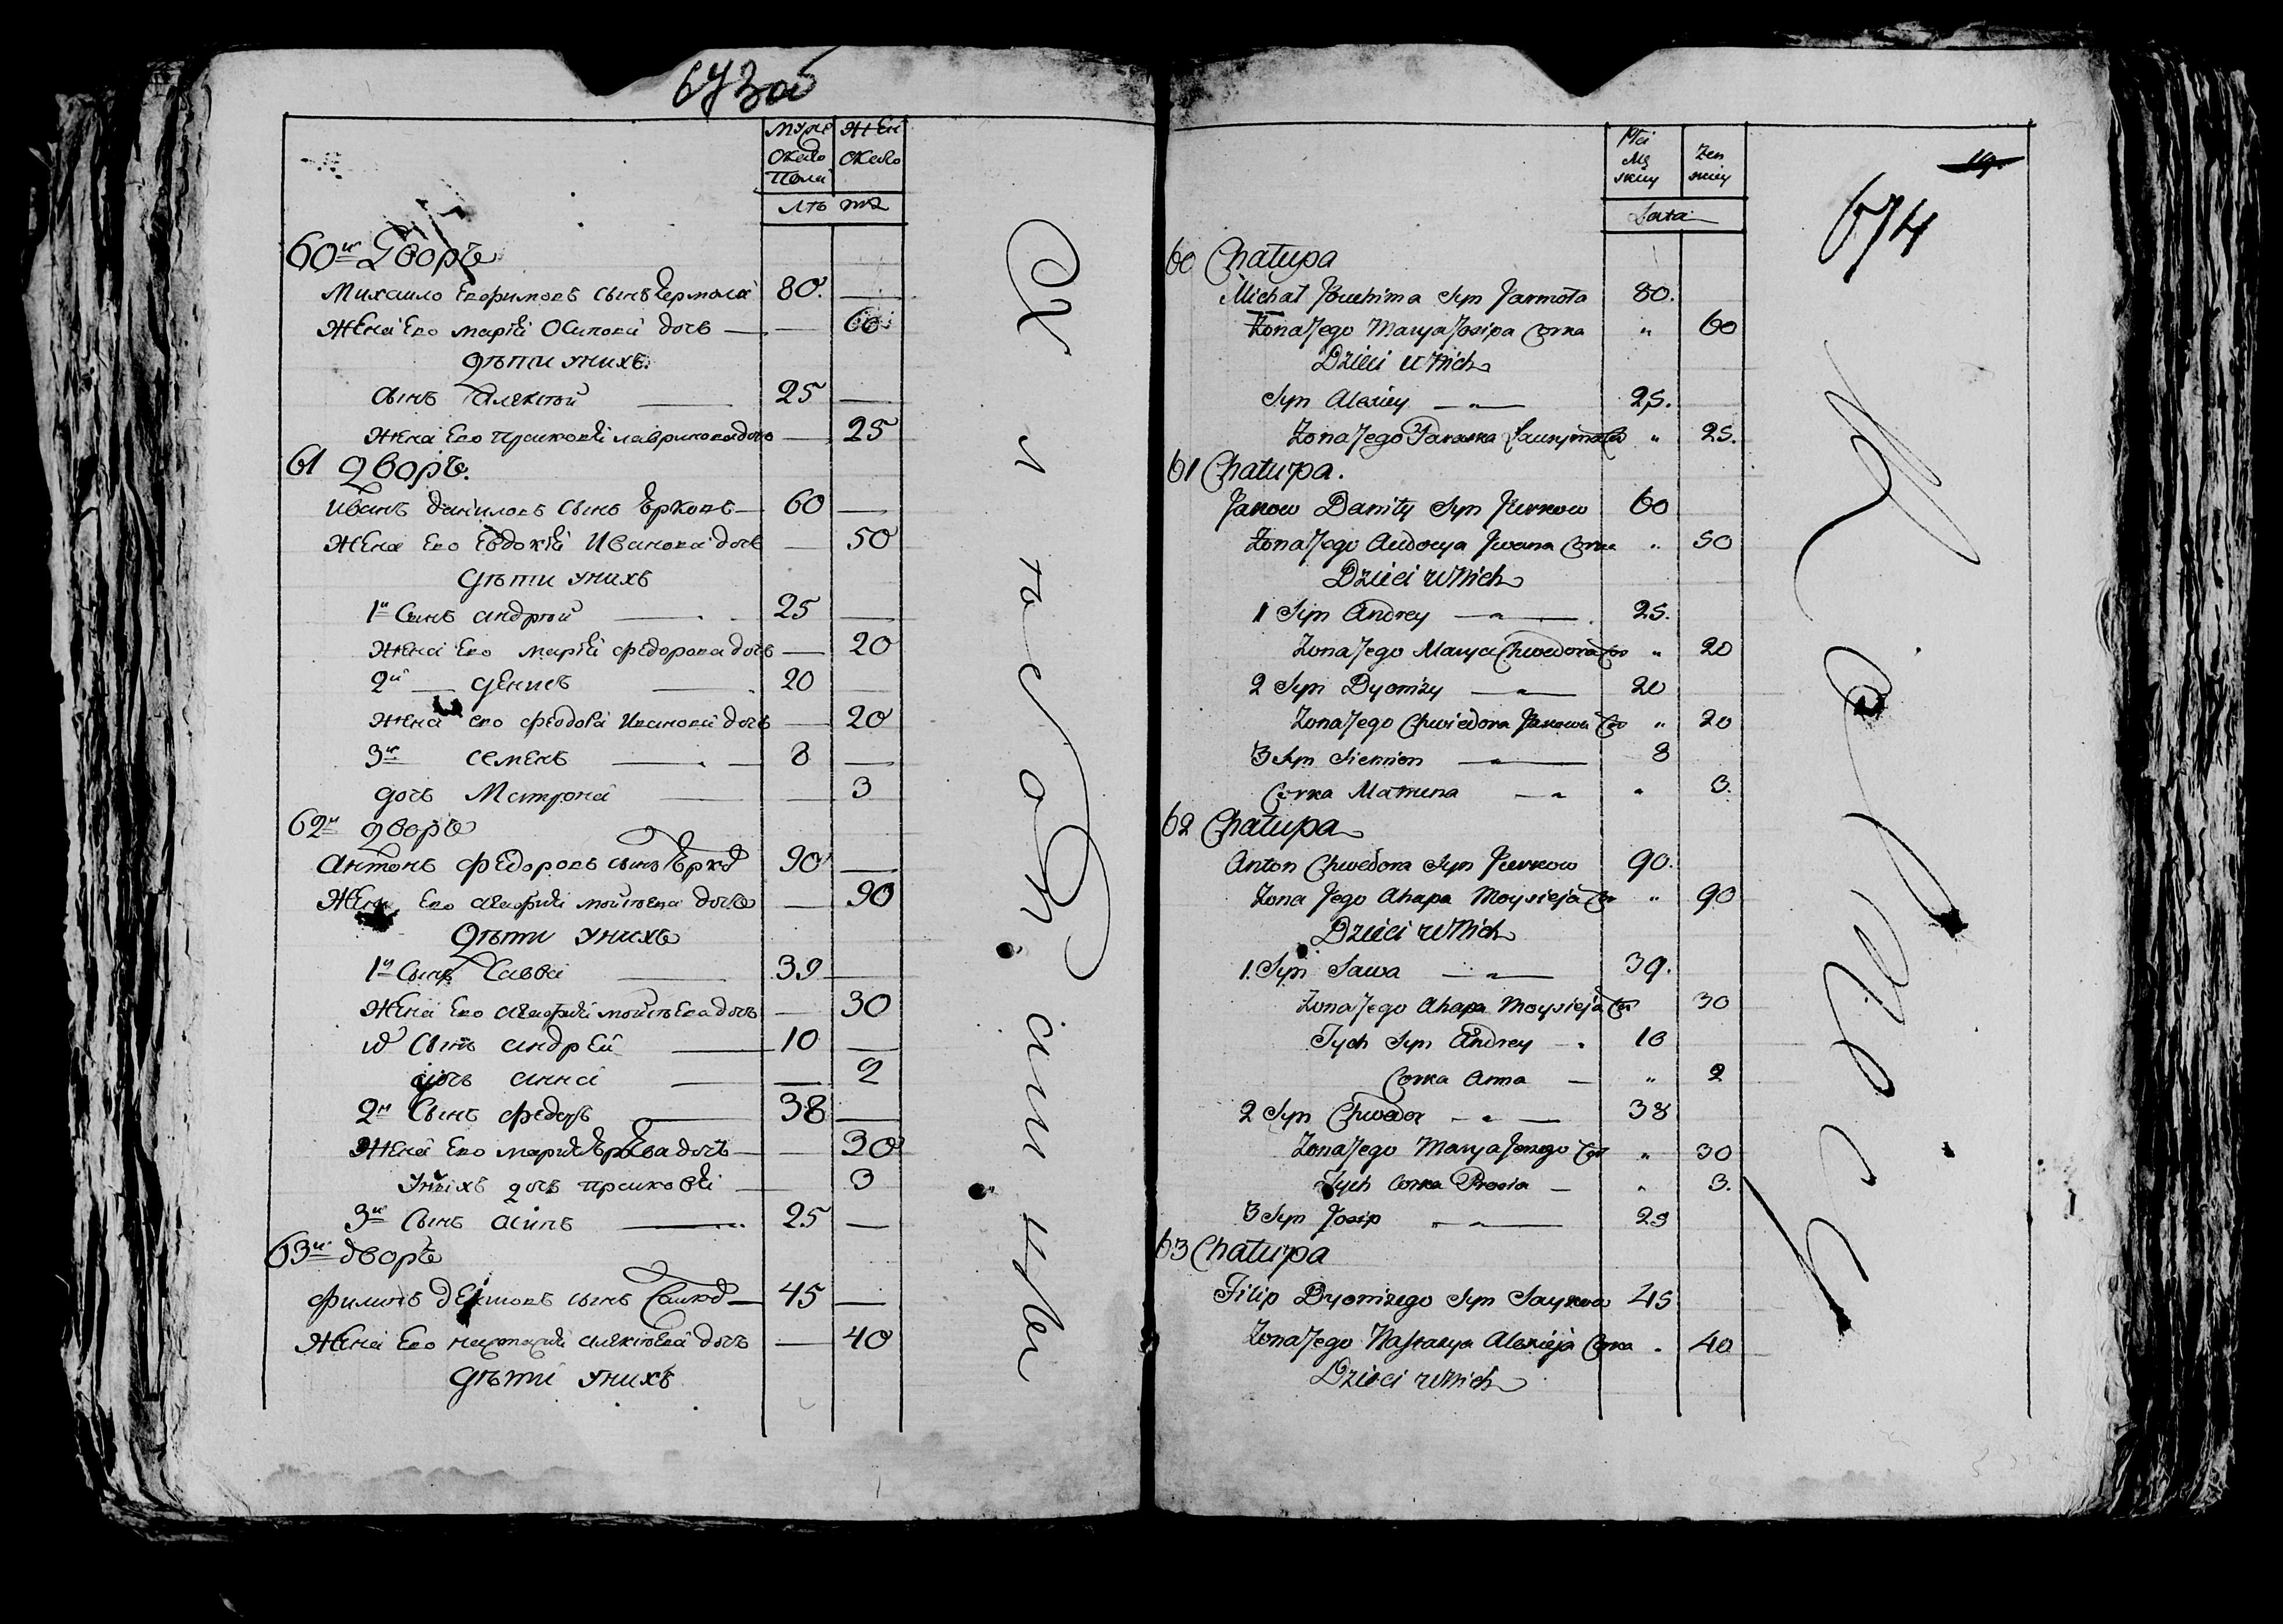 673 об
Муже Жен
около около
Пола
Лѣта
60й Дворъ
Михаило Евфимовъ сынъ Ермола 80. —
Жена Его Мария Осипова дочь — — 60
Дѣти унихъ.
сынъ Алексѣй — 25 —
Жена Его Прасковя Лаврикова дочь — 25
61 дворъ.
Иванъ даниловъ сынъ Юрковъ — 60 —
Жена Его Евдокия Иванова дочь — 50
Дѣти унихъ
1й Сынъ андрѣй — 25 —
Жена Его Мария Федорова дочь — 20
2й — Денисъ — 20 —
Жена его Феодора Иванова дочь — 20
3й Семенъ — 8 —
дочь Матрона — 3
62й дворъ
Антонъ Федоровъ сынъ Юрков 90 —
Жена Его Агафия Мойсѣева дочь — 90
Дѣти унихъ
1й Сынъ Савва — 39 —
Жена Его Агафия Мойсѣева дочь — 30
их Сынъ андрей — 10 —
дочь анна — 2
2й Сынъ Федоръ — 38 —
Жена Его Мария Юрьева дочь — 30
Унихъ дочь Прасковя — 3
3й Сынъ Осипъ — 25 —
63й дворъ
Филипъ Денисовъ сынъ Сайков — 45 —
Жена Его Настасия Алексѣева дочь — 40
Дѣти унихъ
Płci Żen
Mę skiey
skiey
Lata
19.
674
60 Chałupa
Michał Jouchima Syn Jarmoła 80.
Żona Jego Marya Josipa Corka " 60
Dzieci u Nich
Syn Alexiey — " — 25.
Żona Jego Paraska Ławryna Cor " 25.
61 Chałupa.
Jakow Daniły Syn Jurkow 60
Żona Jego Audocya Jwana Corka " 50
Dzieci u Nich
1 Syn Andrey — " — 25.
Żona Jego Marya Chwedora Cor " 20
2 Syn Dyonizy — " — 20
Żona Jego Chwiedora Jakowa Cor " 20
3 Syn Siemion — " — 8
Corka Matruna — " " 3.
62 Chałupa
Anton Chwedora Syn Jurkow 90.
Żona Jego Ahapa Moysieja Cor " 90
Dzieci u Nich
1. Syn Sawa — " — 39.
Żona Jego Ahapa Moysieja Cor 30
Tych Syn Andrey — " 10
Corka Anna — " 2
2 Syn Chwedor — " — 38
Żona Jego Marya Jerzego Cor " 30
Tych Corka Prosia — " 3.
3 Syn Josip — " — 25
63 Chałupa
Filip Dyonizego Syn Saykow 45
Żona Jego Nastazya Alexieja Corka " 40
Dzieci u Nich